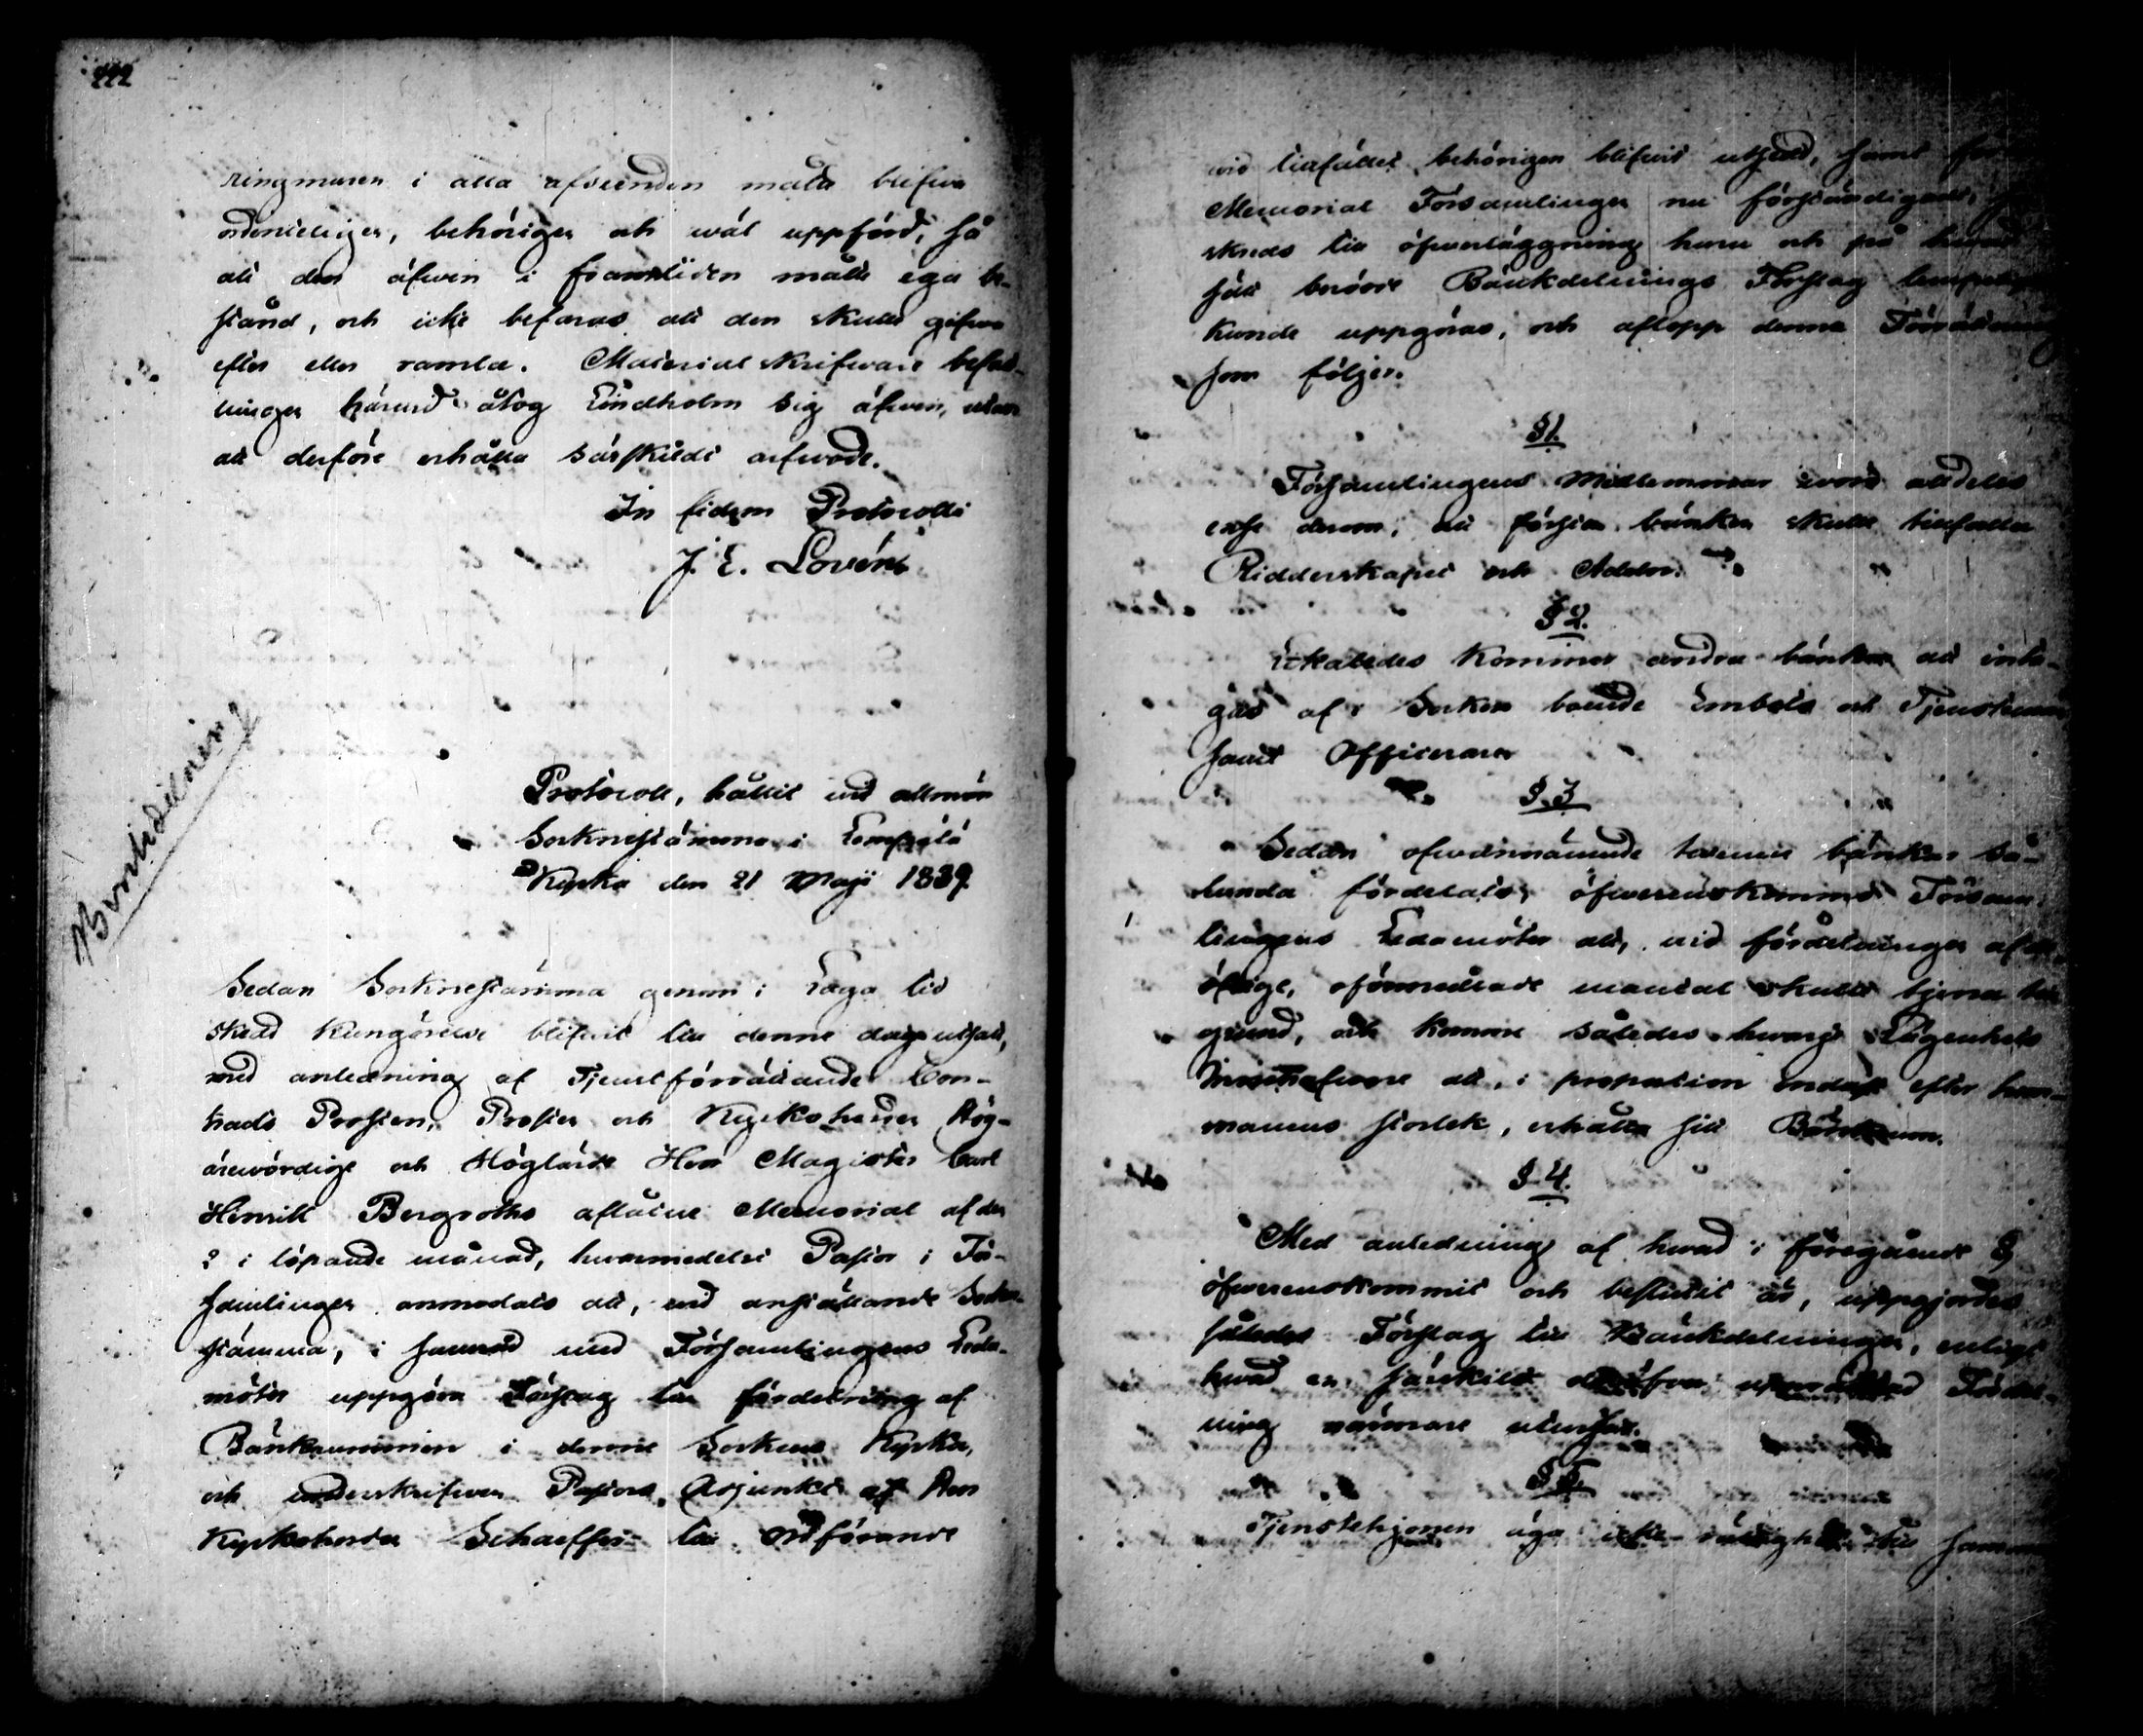 442
ringmuren i alla afseenden måtte blifwa
ordenteligen, behörigen och wäl uppförd, så
att den äfwen i framtiden måtte ega be-
stånd, och icke befaras att den skulle gifwa
efter eller ramla. Material skrifware befatt-
ningen härwid åtog Lindholm sig äfwen, utan
att derföre erhålla särskildt arfwode.
In fidem Protocolli
J. E. Lovén
Bänkdelning
Protocoll, hållit wid allmän
Socknestämma i Lempälä
Kyrka den 21 Maji 1839.
Sedan Socknestämma genom i Laga tid
skedd Kungörelse blifwit till denne dag utsatt,
med anledning af Tjenstförrättande Con-
trads Prosten, Prosten och Kyrkoherden Hög-
ärewördige och Höglärde Herr Magister Carl
Henrik Bergroths aflåtne Memorial af den
2 i löpande månad, hwarmedelst Pastor i För-
samlingen anmodats att, wid anställande Sockne-
stämma, i samråd med Församlingens Leda-
möter uppgöra Förslag till fördelning af
Bänkrummen i denne Sockens Kyrka,
och underskrifwen Pastors Adjunkt af Herr
Kyrkoherden Schaeffer till Ordförande
wid tillfället behörigen blifwit utsedd, samt
Memorial Församlingen nu förständigadt,
skreds till öfwerläggning huru och på hwad
sätt berörde Bänkdelnings Förslag lempeligen
kunde uppgöras, och aflopp denna Förrättning
som följer.
§1.
Församlingens Medlemmar woro alldeles
ense derom, att första bänken skulle tillfalla
Ridderskapet och Adeln.
§2.
Likaledes kommer andra bänken att inta-
gas af i Socken boende Embets och Tjenstemän
samt Officerare
§.3
Sedan ofwannämnde twenne bänkar så-
lunda fördelats, öfwerenskommo Försam-
lingens Ledamöter att, wid fördelningen af de
öfrige, oförmedlade mantal skulle tjena till
grund, och komme således hwarje Lägenhets
Innehafware att, i proportion endast efter hem-
manens storlek, erhålla sitt Bänkrum.
§4.
Med anledning af hwad i föregående §
öfwerenskommit och beslutit är, uppgjordes
således Förslag till Bänkdelningen, enligt
hwad en särskildt deröfwer upprättad Fördel-
ning närmare utwisar.
§5.
Tjenstehjonen äga icke rättighet till samma